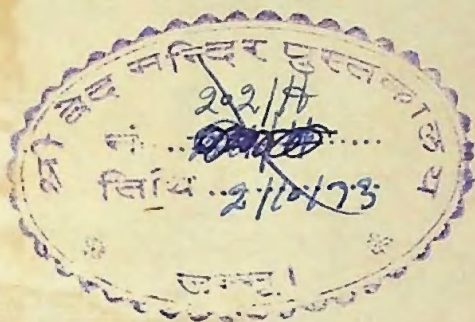 श्री वेद मन्दिर पुस्तकालय
202/A
नं.
तिथि 2/10/73
जम्मू।